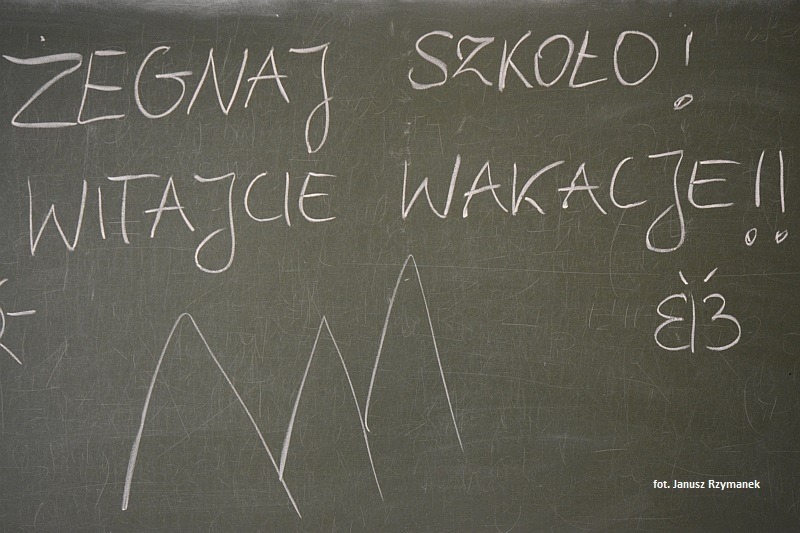 ŻEGNAJ SZKOŁO!
WITAJCIE WAKACJE!!
fot. Janusz Rzymanek